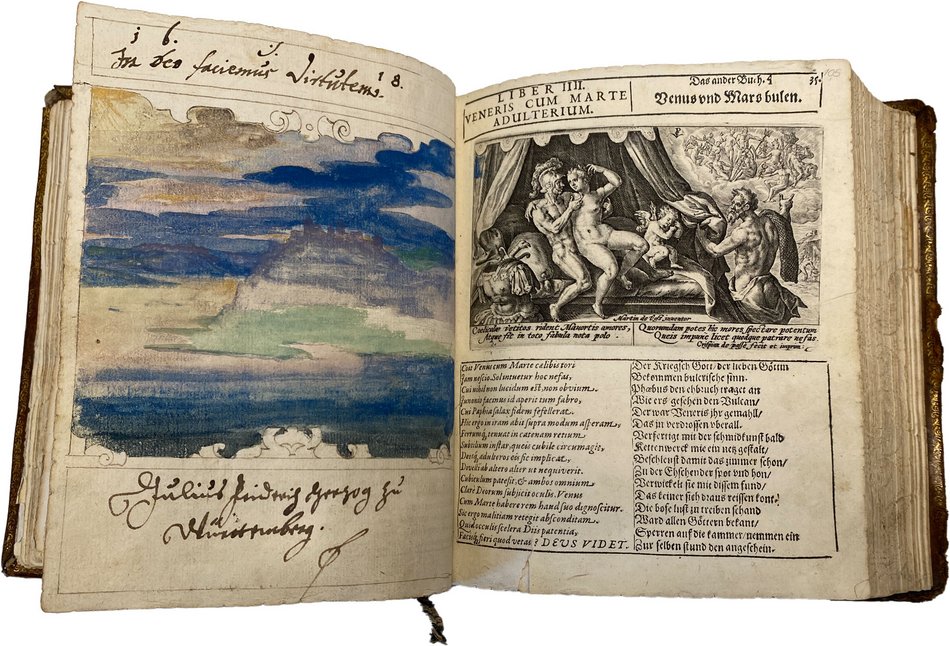 1 6. 1 8.
In deo faciemus Virtutem.
Julius Fridrich Hertzog zu
Württenberg.
105
LIBER IIII.
VENERIS CUM MARTE
ADULTERIUM.
Das ander Buch.
35.
Venus vnd Mars bulen.
Martin de Vos inventor
Coelicolae vetitos rident Mavortis amores,
Atque fit in toto fabula nota polo.
Quorumdam potes hic mores spectare potentum
Queis impune licet quodque patrare nefas.
Crispin de pass fecit et imprim:
Cuit Venus cum Marte calibis tori
Jam nescio. Soluntuetur hoc nefas,
Cui nihil non lucidum est, non obvium.
Junonis facinus id aperit tum fabro,
Cui Paphia salax fidem fefellerat.
Hic ergo in iram abit supra modum asperam,
Ferrumq; tenuat in catenam retium
Subtilium instar, queis cubile circumagit,
Devinciri ab altero alter ut nequiverit.
Cubiculum patefit, & ambos omnium
Clare Deorum subjicit oculis. Venus
Cum Marte habere rem haud suo dignoscitur.
Sic ergo malitiam retegit absconditam.
Quid occulis scelera Diis patentia,
fieri quod vetas? DEUS VIDET.
Der Kriegsch Gott/ der lieben Göttin
Bekommen bulerische sinn.
Phœbus den ehbruch traget an
Wie ers gesehen den Vulcan/
Der war Veneris ihr gemahll/
Das in verdrossen vberall.
Verfertigt mit der schmidkunst bald
Kettenwerck wie ein netz gestalt/
Beschleust damit das zimmer schon/
Zu der Ehschender spot vnd hon/
Verwickelt sie mit dissem fund/
Das keiner sich draus reissen kont.
Die bose lust zu treiben schand
Ward allen Göttern bekant/
Sperren auf die kammer/nemmen ein
Zur selben stund den angeschein.